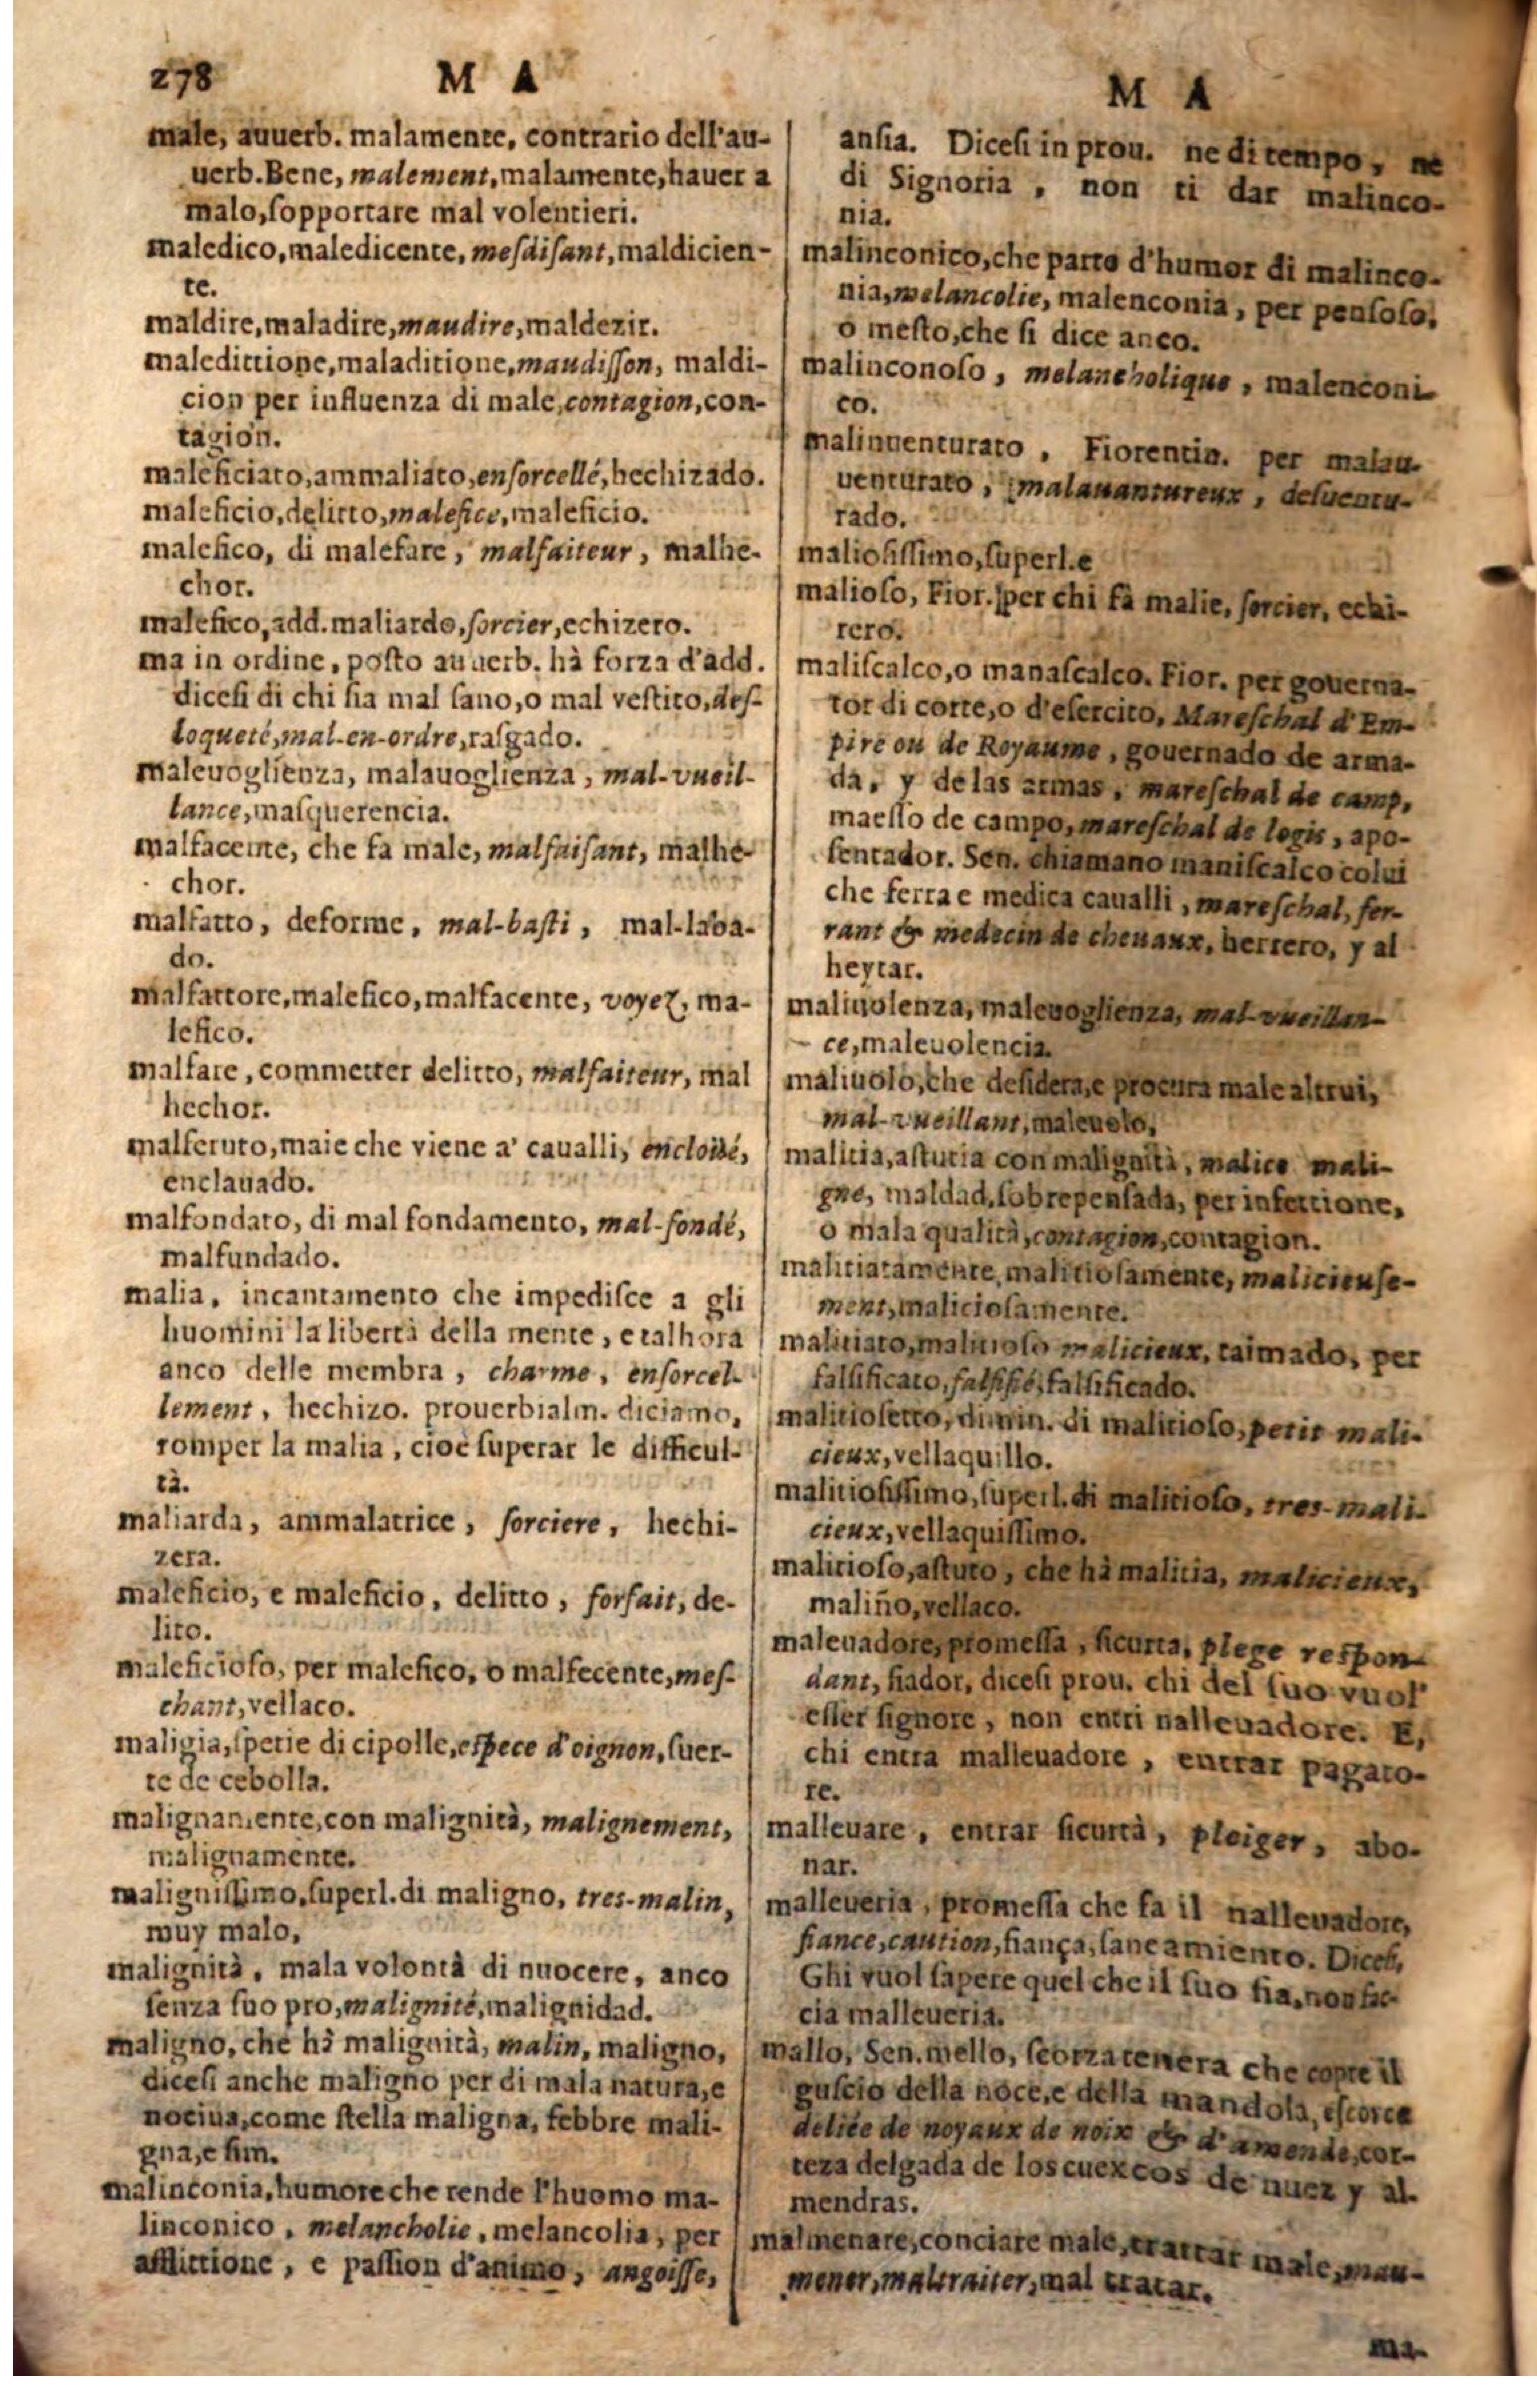 278 M A
male, auuerb. malamente, contrario dell'au-
uerb.Bene, malement, malamente, hauer a
malo, ſopportare mal volentieri.
maledico, maledicente, meſdiſant, maldicien-
te.
maldire, maladire, maudire, maldezir.
maledittione, maladitione, maudiſſon, maldi-
cion per influenza di male, contagion, con-
tagion.
maleficiato, ammaliato, enſorcellé, hechizado.
maleficio, delitto, malefice, maleficio.
malefico, di malefare, malfaiteur, malhe-
chor.
malefico, add. maliardo, ſorcier, echizero.
ma in ordine, poſto auuerb. hà forza d'add.
diceſi di chi ſia mal ſano, o mal veſtito, deſ-
loqueté, mal-en-ordre, raſgado.
malevoglienza, malavoglienza, mal-vueil-
lance, maſquerencia.
malfacente, che fa male, malfaiſant, malhe-
chor.
malfatto, deforme, mal-baſti, mal-laba-
do.
malfattore, malefico, malfacente, voyez, ma-
lefico.
malfare, commetter delitto, malfaiteur, mal
hechor.
malferuto, maie che viene a' caualli, encloüé,
enclauado.
malfondato, di mal fondamento, mal-fondé,
malfundado.
malia, incantamento che impediſce a gli
huomini la libertà della mente, e talhora
anco delle membra, charme, enſorcel-
lement, hechizo. prouerbialm. diciamo,
romper la malia, cioè ſuperar le difficul-
tà.
maliarda, ammalatrice, ſorciere, hechi-
zera.
maleficio, e maleficio, delitto, forfait, de-
lito.
maleficioſo, per malefico, o malfecente, meſ-
chant, vellaco.
maligia, ſpetie di cipolle, eſpece d'oignon, ſuer-
te de cebolla.
malignamente, con malignità, malignement,
malignamente.
maligniſſimo, ſuperl. di maligno, tres-malin,
muy malo,
malignità, mala volontà di nuocere, anco
ſenza ſuo pro, malignité, malignidad.
maligno, che hà malignità, malin, maligno,
diceſi anche maligno per di mala natura, e
nociua, come ſtella maligna, febbre mali-
gna, e ſim.
malinconia, humore che rende l'huomo ma-
linconico, melancholie, melancolia, per
afflittione, e paſſion d'animo, angoiſſe,
M A
anſia. Diceſi in prou. ne di tempo, ne
di Signoria, non ti dar malinco-
nia.
malinconico, che parte d'humor di malinco-
nia, melancolie, malenconia, per penſoſo,
o meſto, che ſi dice anco.
malinconoſo, melancholique, malenconi-
co.
malinuenturato, Fiorentin. per malau-
uenturato, malauantureux, deſuentu-
rado.
malioſiſſimo, ſuperl.e
malioſo, Fior. per chi fà malie, ſorcier, echi-
rero.
maliſcalco, o manaſcalco. Fior. per gouerna-
tor di corte, o d'eſercito, Mareſchal d'Em-
pire ou de Royaume, gouernado de arma-
da, y de las armas, mareſchal de camp,
maeſſo de campo, mareſchal de logis, apo-
ſentador. Sen. chiamano maniſcalco colui
che ferra e medica caualli, mareſchal, fer-
rant & medecin de cheuaux, herrero, y al
heytar.
maliuolenza, malevoglienza, mal-vueillan-
ce, maleuolencia.
maliuolo, che deſidera, e procura male altrui,
mal-vueillant, maleuolo,
malitia, aſtutia con malignità, malice mali-
gne, maldad, ſobrepenſada, per infettione,
o mala qualità, contagion, contagion.
malitiatamente, malitioſamente, malicieuſe-
ment, malicioſamente.
malitiato, malitioſo malicieux, taimado, per
falſificato, falſifié, falſificado.
malitioſetto, dimin. di malitioſo, petit mali-
cieux, vellaquillo.
malitioſiſſimo, ſuperl. di malitioſo, tres-mali-
cieux, vellaquiſſimo.
malitioſo, aſtuto, che hà malitia, malicieux,
maliño, vellaco.
maleuadore, promeſſa, ſicurta, plege reſpon-
dant, fiador, diceſi prou. chi del ſuo vuol
eſſer ſignore, non entri nalleuadore. E,
chi entra malleuadore, entrar pagato-
re.
malleuare, entrar ſicurtà, pleiger, abo-
nar.
malleueria, promeſſa che fa il nalleuadore,
fiance, caution, fiança, ſaneamiento. Diceſi,
Ghi vuol ſapere quel che il ſuo ſia, non fac-
cia malleueria.
mallo, Sen. mello, ſcorza tenera che copre il
guſcio della noce, e della mandola, eſcorce
deliée de noyaux de noix & d'amende, cor-
teza delgada de los cuexcos de nuez y al-
mendras.
malmenare, conciare male, trattar male, mau-
mener, maltraiter, mal tratar.
ma-